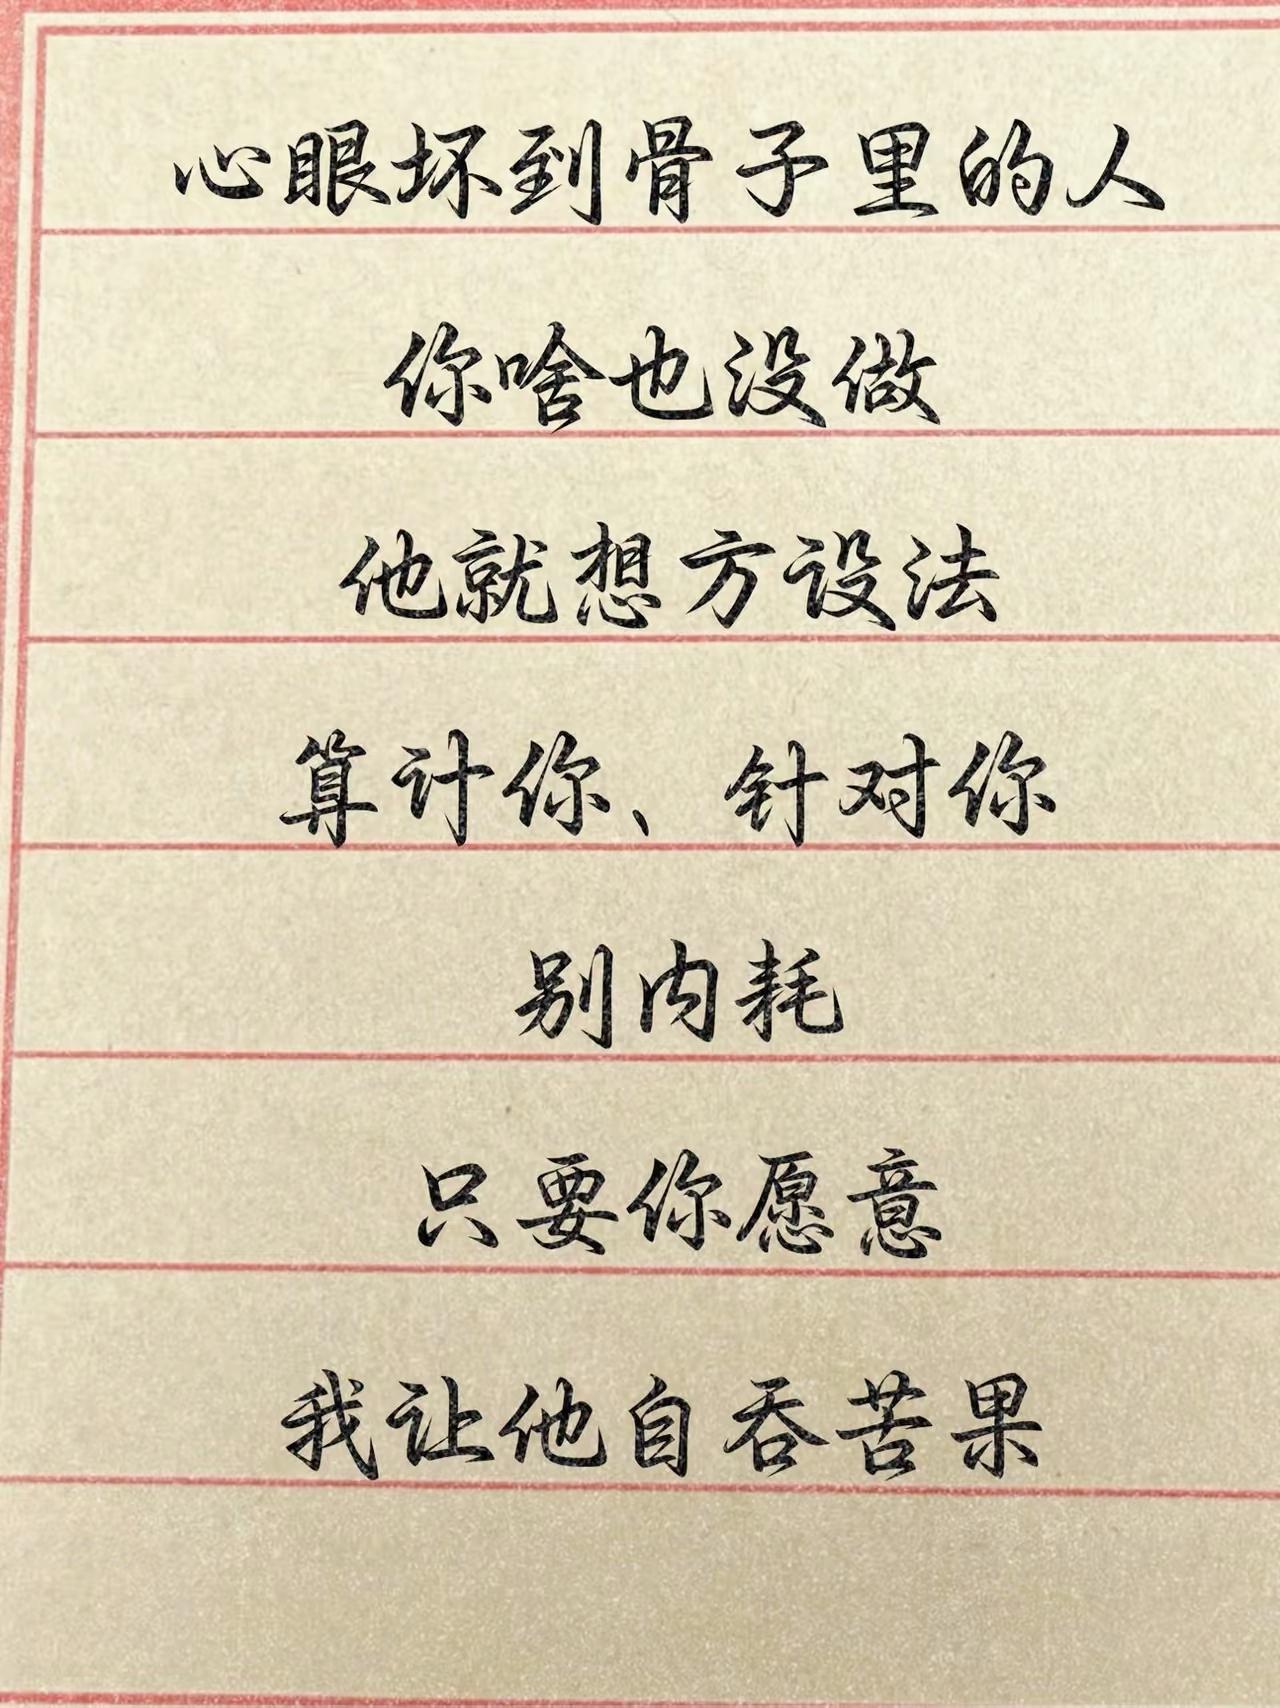 心眼坏到骨子里的人
你啥也没做
他就想方设法
算计你、针对你
别内耗
只要你愿意
我让他自吞苦果